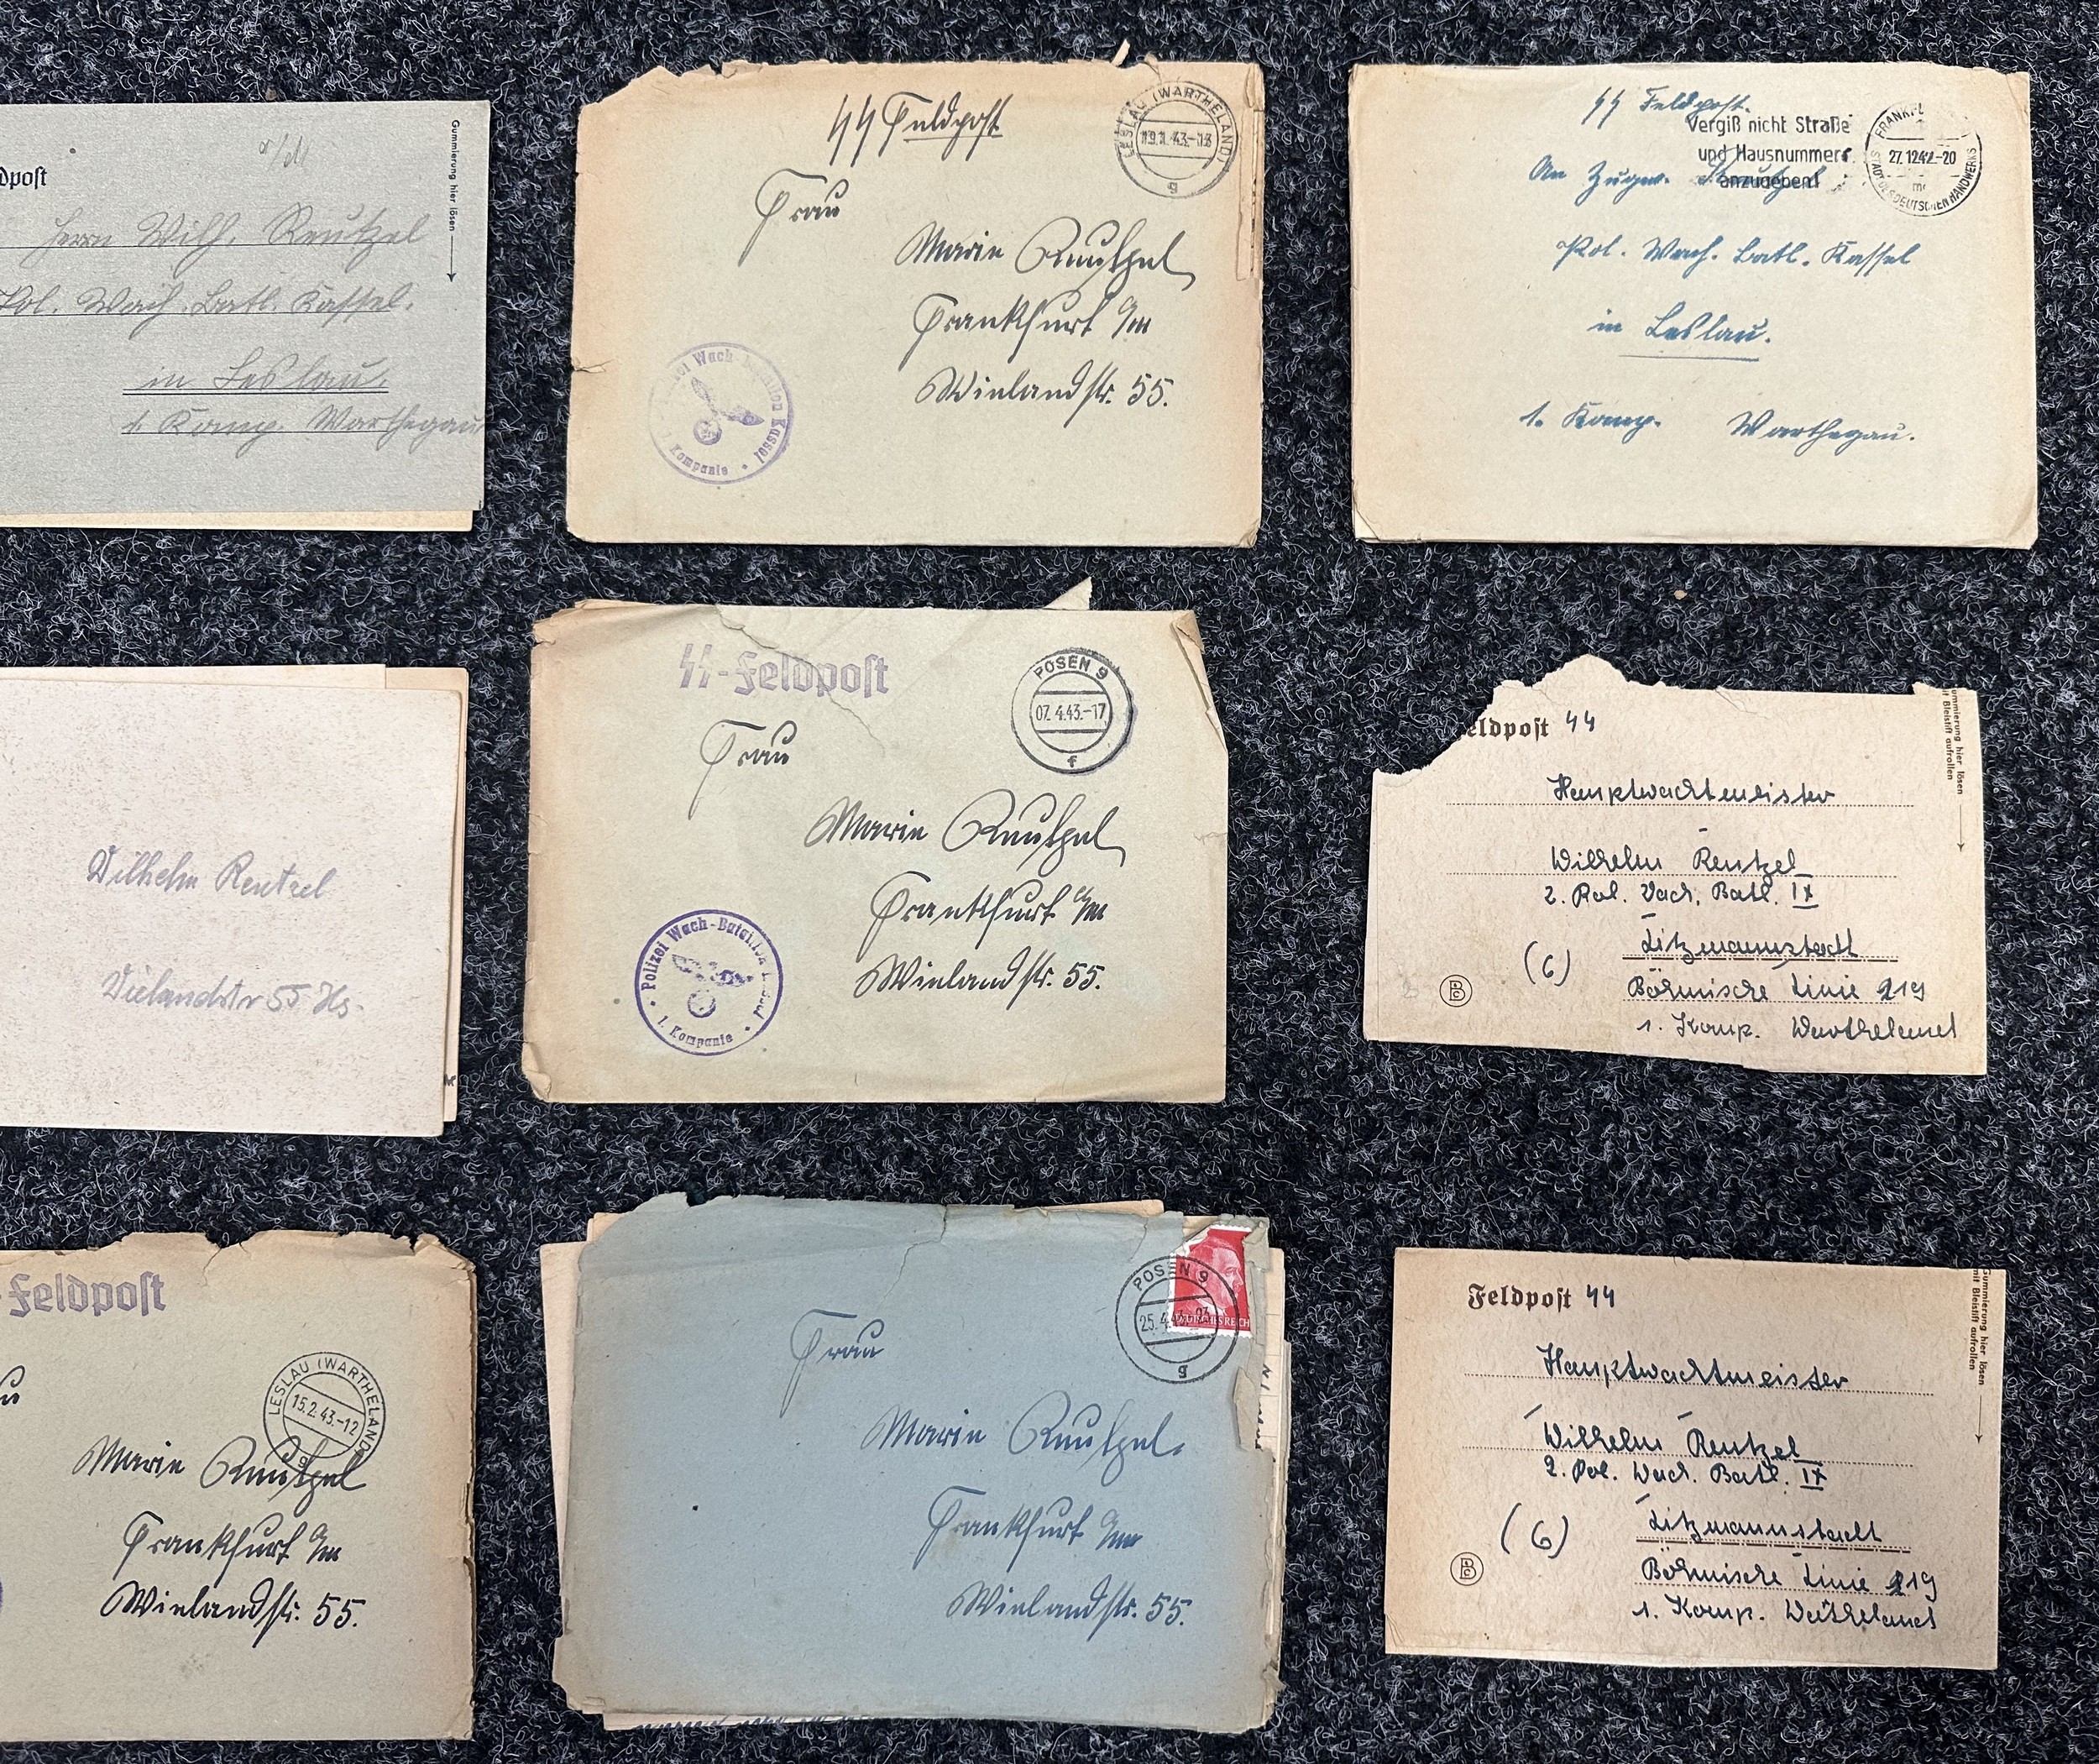 Feldpost
Gummierung hier lösen
Herrn Wilh. Reutzel
Pol. Wach. Batl. Kassel.
in Leslau.
1. Komp. Warthegau
ϟϟ Feldpost
LESLAU (WARTHELAND)
19.1.43.-13
g
Frau
Marie Reutzel
Frankfurt a/m
Wielandstr. 55.
Polizei Wach-Bataillon Kassel
1. Kompanie
ϟϟ Feldpost.
Vergiß nicht Straße
und Hausnummer
anzugeben!
27.12.42.-20
STADT DES DEUTSCHEN HANDWERKS
An Zugw. Reutzel
Pol. Wach. Batl. Kassel
in Leslau.
1. Komp. Warthegau.
Wilhelm Reutzel
Wielandstr 55. Hs.
ϟϟ-Feldpost
POSEN 9
07.4.43.-17
f
Frau
Marie Reutzel
Frankfurt a/m
Wielandstr. 55.
Polizei Wach-Bataillon Kassel
1. Kompanie
eldpost ϟϟ
ummierung hier lösen
it Bleistift aufrollen
Hauptwachtmeister
Wilhelm Reutzel
2. Pol. Wach. Batl. IX
(6)
Litzmannstadt
Böhmische Linie 219
1. Komp. Wartheland
Feldpost
LESLAU (WARTHELAND)
15.2.43.-12
g
Marie Reutzel
Frankfurt a/m
Wielandstr. 55.
POSEN 9
DEUTSCHES REICH
g
Frau
Marie Reutzel.
Frankfurt a/m
Wielandstr. 55.
Feldpost ϟϟ
Gummierung hier lösen
mit Bleistift aufrollen
Hauptwachtmeister
Wilhelm Reutzel
2. Pol. Wach. Batl. IX
(6)
Litzmannstadt
Böhmische Linie 219
1. Komp. Wartheland